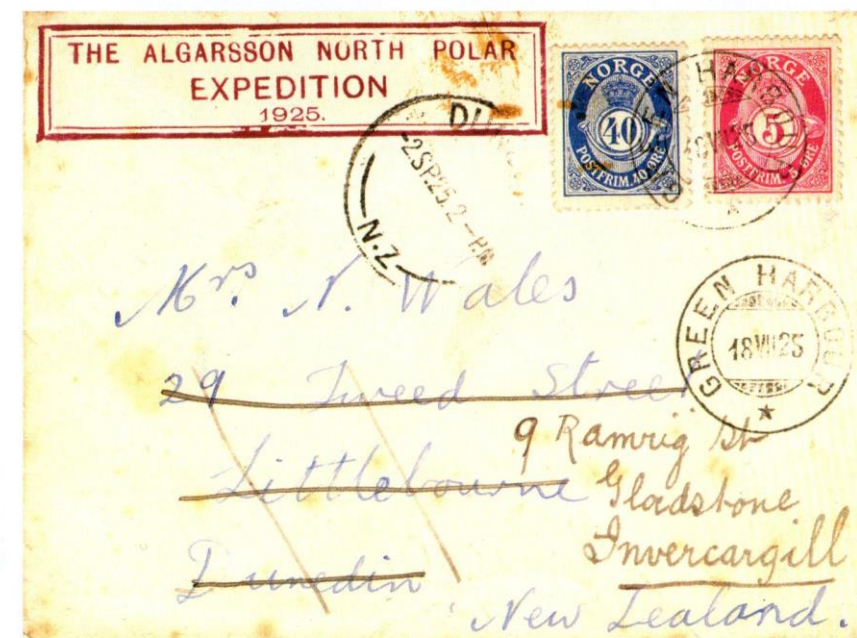 THE ALGARSSON NORTH POLAR
EXPEDITION
1925.
NORGE
40
POSTFRIM. 40 ØRE
NORGE
5
POSTFRIM. 5 ØRE
-2 SP 25. 2 - PM
N.Z.
Mrs N. Wales
GREEN HARBOUR
18 VII 25
29 Tweed Street
9 Ramrig St
Littlebourne
Gladstone
Dunedin
Invercargill
New Zealand.